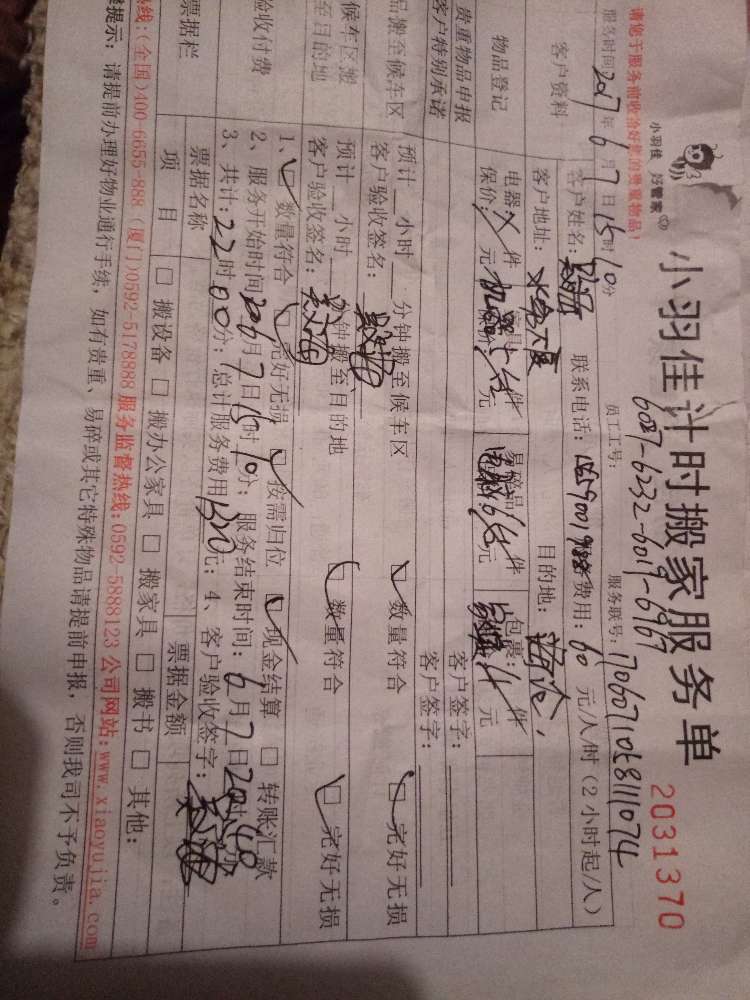 小羽佳 好管家
小羽佳计时搬家服务单
2031370
6087-6232-6019-6967
请您于服务前收拾好您的贵重物品!
服务时间 2017年6月7日15时10分 员工工号: 服务联号: 170607105811074
客户资料 客户姓名: 联系电话: 服务费用: 60 元/人/时(2小时起/人)
客户地址: 目的地:
物品登记 电器 件 家具 件 易碎品 件 包裹: 件
保价: 元 保价: 元 元 元
贵重物品申报 客户签字:
客户特别承诺 客户签字:
品搬至候车区 预计 小时 分钟搬至候车区 数量符合 完好无损
客户验收签名:
候车区搬至目的地 预计 小时 分钟搬至目的地 数量符合 完好无损
客户验收签名:
验收付费 1、 数量符合 完好无损 按需归位 现金结算 转账汇款
2、服务开始时间 6月7日15时10分; 服务结束时间: 6月7日20时40
3、共计: 22时00分; 总计服务费用 1320元; 4、客户验收签字:
票据栏 票据名称 票据金额
项目 搬设备 搬办公家具 搬家具 搬书 其他:
热线:(全国)400-6655-888 (厦门)0592-5178888 服务监督热线:0592-5888123 公司网站:www.xiaoyujia.com
提示: 请提前办理好物业通行手续, 如有贵重、易碎或其它特殊物品请提前申报, 否则我司不予负责。